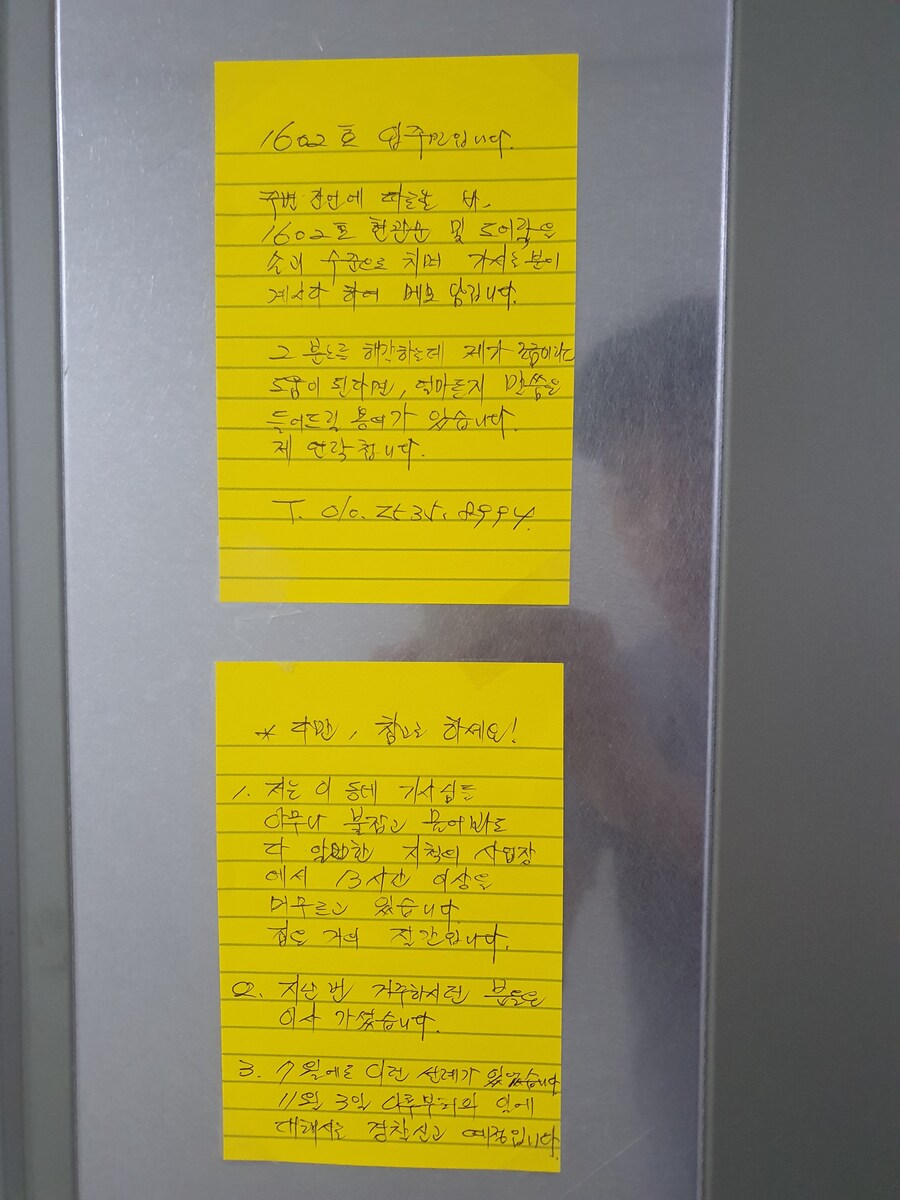 1602호 입주민입니다.
주변 전언에 따르는 바,
1602호 현관문 및 도어락을
손괴 수준으로 치며 가시는 분이
계시다 하여 메모 남깁니다.
그 분노를 해갈하는데 제가 조금이라도
도움이 된다면, 얼마든지 말씀을
들어드릴 용의가 있습니다.
제 연락첩니다.
T. 010. 2535. 8994.
* 다만, 참고로 하세요!
1. 저는 이 동네 기사님들
아무나 붙잡고 물어봐도
다 알만한 지척의 사업장
에서 13시간 이상을
머무르고 있습니다.
집은 거의 잠깐입니다.
2. 지난 번 거주하시던 분들은
이사 가셨습니다.
3. 7월에도 이런 선례가 있었습니다
11월 3일 이후부터의 일에
대해서는 경찰신고 예정입니다.